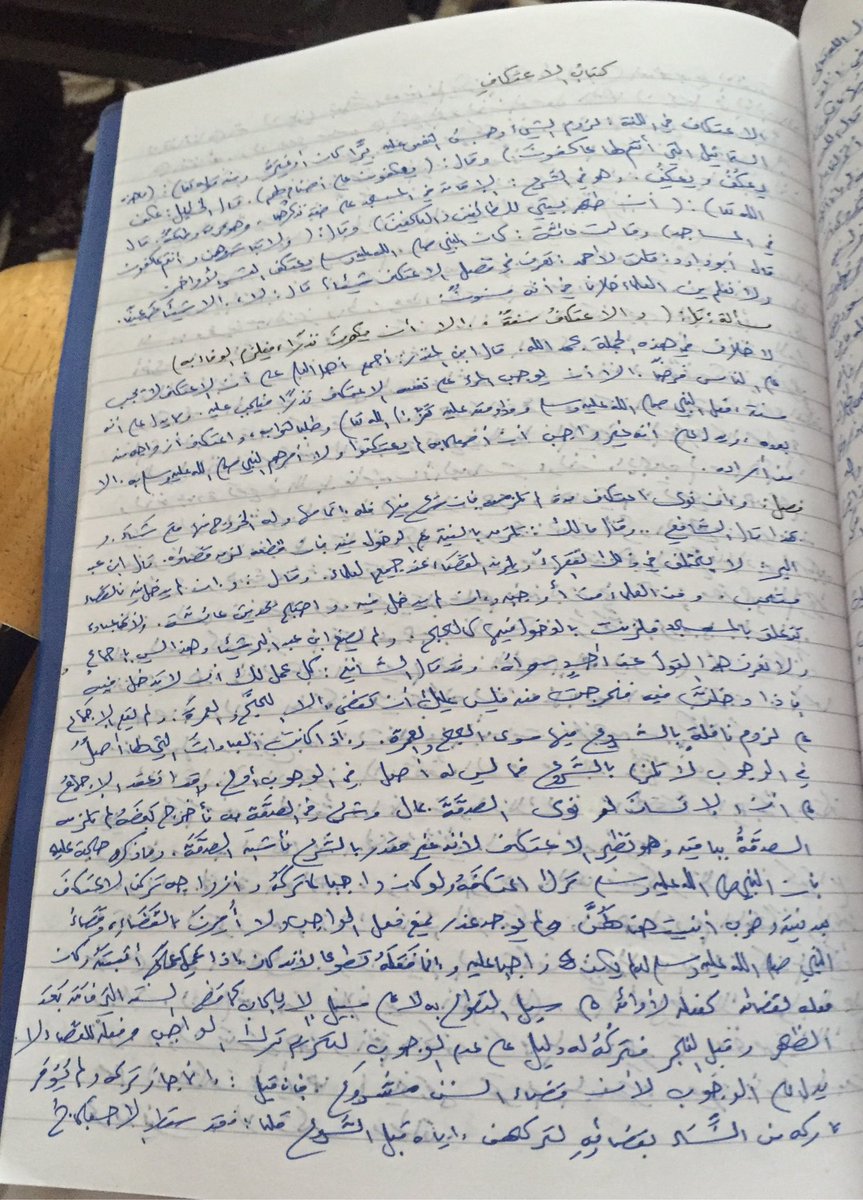 كتاب الاعتكاف
الاعتكاف في اللغة: لزوم الشيء وحبس النفس عليه برًّا كان أو غيره ومنه قوله تعالى: (ما هذه
التماثيل التي أنتم لها عاكفون) وقال: (يعكفون على أصنام لهم). قال الخليل: عكف
يعكُف ويعكِف. وهو في الشرع: الإقامة في المسجد على صفة نذكرها، وهو قربة وطاعة. قال
الله تعالى: (أن طهر بيتي للطائفين والعاكفين) وقال: (ولا تباشروهن وأنتم عاكفون
في المساجد) وقالت عائشة: كان النبي صلى الله عليه وسلم يعتكف العشر الأواخر
قال أبو داود: قلت لأحمد: تعرف في فضل الاعتكاف شيئا؟ قال: لا، إلا شيئًا ضعيفًا.
ولا نعلم بين العلماء خلافا في أنه مسنون.
مسألة: قال: (والاعتكاف سنة، إلا أن يكون نذرًا، فيلزم الوفاء به)
لا خلاف في هذه الجملة بحمد الله. قال ابن المنذر: أجمع أهل العلم على أن الاعتكاف لا يجب
على الناس فرضًا، إلا أن يوجب المرء على نفسه الاعتكاف نذرًا فيجب عليه. ومما يدل على أنه
سنة، فعل النبي صلى الله عليه وسلم ومداومته عليه تقربًا إلى الله تعالى وطلبا لثوابه، واعتكاف أزواجه معه
بعده، ويدل على أنه غير واجب أن أصحابه لم يعتكفوا ولا أمرهم النبي صلى الله عليه وسلم به إلا
من أراده.
فصل: وإن نوى اعتكاف مدة لم تلزمه فإن شرع فيها فله إتمامها وله الخروج منها متى شاء، و
بهذا قال الشافعي. وقال مالك: تلزمه بالنية مع الدخول فيه فإن قطعه لزمه قضاؤه. قال ابن عبد
البر: لا يختلف في ذلك الفقهاء ويلزمه القضاء عند جميع العلماء. وقال: وإن لم يدخل فيه فالقضاء
مستحب. ومن العلماء من أوجبه وإن لم يدخل فيه. واحتج بحديث عائشة. ولأنها عبادة
تتعلق بالمسجد فلزمت بالدخول فيها كالحج. ولم يصنع ابن عبد البر شيئا وهذا ليس بإجماع
ولا نعرف هذا القول عن أحدٍ سواه. وقد قال الشافعي: كل عمل لك أن لا تدخل فيه
فإذا دخلت فيه فخرجت منه فليس عليك أن تقضي إلا الحج والعمرة. ولم يقع الإجماع
على لزوم نافلةٍ بالشروع فيها سوى الحج والعمرة. وإذا كانت العبادات التي لها أصلٌ
في الوجوب لا تلزم بالشروع فما ليس له أصل في الوجوب أولى. وقد انعقد الإجماع
على أن الإنسان لو نوى الصدقةَ بمال وشرع في الصدقة به فأخرج بعضه لم تلزمه
الصدقةُ بباقيه وهو نظير الاعتكاف لأنه غير مقدر بالشرع فأشبه الصدقة. وما ذكره حجة عليه
فإن النبي صلى الله عليه وسلم ترك اعتكافه ولو كان واجبا لما تركه وأزواجه تركن الاعتكاف
بعد نيته وضرب أبنيتهن ولم يوجد عذر يمنع فعل الواجب ولا أُمرن بالقضاء، وقضاءُ
النبي صلى الله عليه وسلم له لم يكن واجبا عليه وإنما فعله تطوعا لأنه كان إذا عمل عملا أثبته وكان
فعله لقضائه كفعله لأدائه على سبيل التطوع به لا على سبيل الإيجاب كما قضى السنة التي فاتته بعد
الظهر وقبل الفجر فتركه له دليل على عدم الوجوب لتحريم ترك الواجب وفعله للقضاء لا
يدل على الوجوب لأن قضاء السنن مشروع. فإن قيل: إنما جاز تركه ولم يؤمر
تاركه من النساء بقضائه لتركهن إياه قبل الشروع قلنا: فقد سقط الاحتجاج